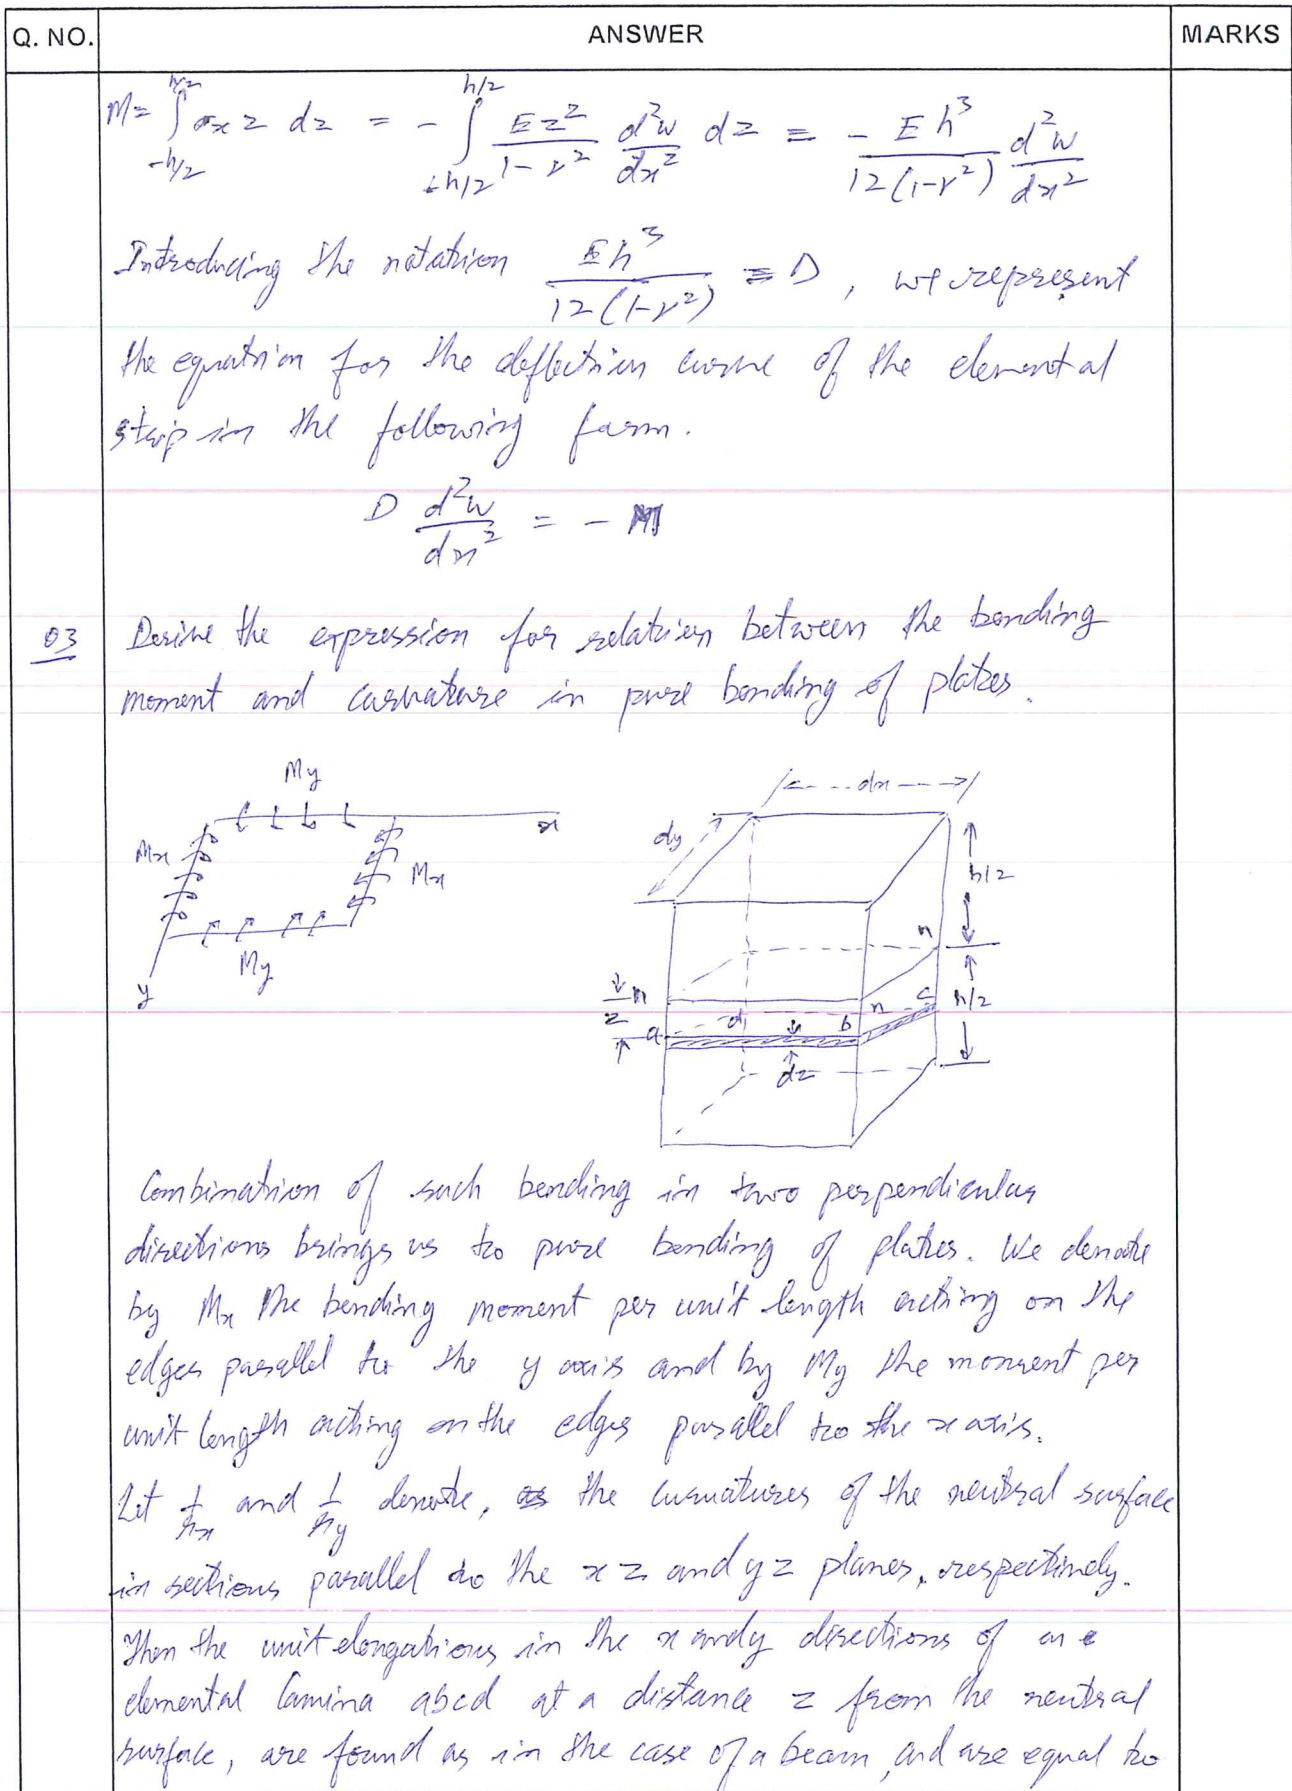 Q. NO. ANSWER MARKS
M = ∫_{-h/2}^{h/2} σx z dz = - ∫_{-h/2}^{h/2} Ez²/(1-ν²) d²w/dx² dz = - Eh³/(12(1-ν²)) d²w/dx²
Introducing the notation Eh³/(12(1-ν²)) = D, we represent
the equation for the deflection curve of the elemental
strip in the following form.
D d²w/dx² = - M
03 Derive the expression for relation between the bending
moment and curvature in pure bending of plates.
My
Mx
x
Mx
My
y
dx
dy
h/2
n
n
z
a d b n c
h/2
dz
Combination of such bending in two perpendicular
directions brings us to pure bending of plates. We denote
by Mx the bending moment per unit length acting on the
edges parallel to the y axis and by My the moment per
unit length acting on the edges parallel to the x axis.
Let 1/rx and 1/ry denote, the curvatures of the neutral surface
in sections parallel to the xz and yz planes, respectively.
Then the unit elongations in the x and y directions of an
elemental lamina abcd at a distance z from the neutral
surface, are found as in the case of a beam, and are equal to